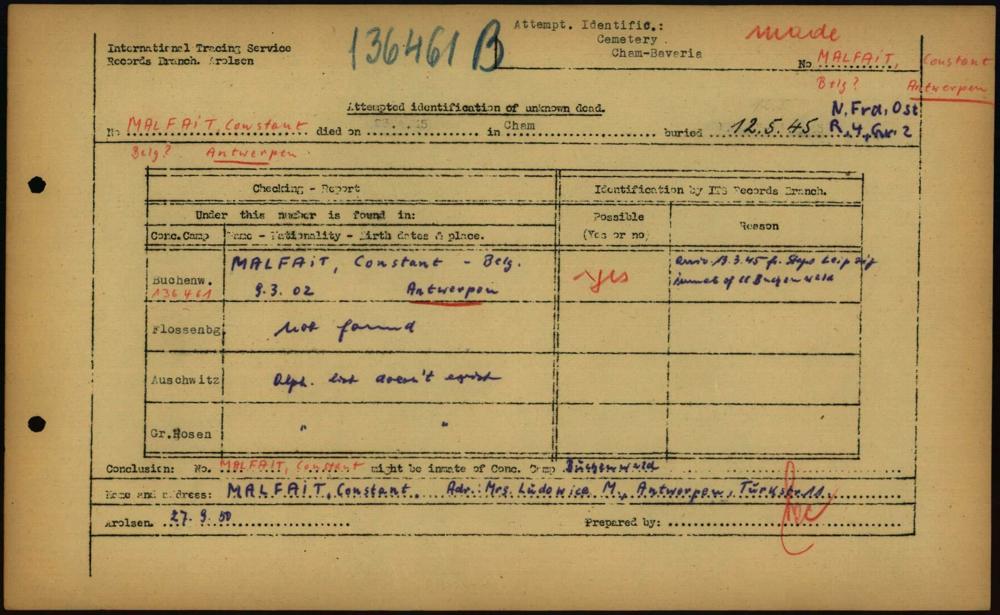 International Tracing Service
Records Branch. Arolsen
136461 B
Attempt. Identific.:
Cemetery
Cham-Bavaria
made
No MALFAIT, Constant
Belg? Antwerpen
Attempted identification of unknown dead.
N. Frd, Ost
No MALFAIT, Constant died on in Cham buried 12.5.45 R. 4, Gr. 2
Belg? Antwerpen
Checking - Report
Identification by ITS Records Branch.
Under this number is found in:
Possible
(Yes or no)
Reason
Conc.Camp
Name - Nationality - Birth dates & place.
Buchenw.
136461
MALFAIT, Constant - Belg.
9.3.02 Antwerpen
yes
arriv. 13.3.45 fr. Leipzig
inmate of CC Buchenwald
Flossenbg.
not found
Auschwitz
Alph. list doesn't exist
Gr.Rosen
" "
Conclusion: No. MALFAIT, Constant might be inmate of Conc. Camp Buchenwald
Name and address: MALFAIT, Constant. Adr. Mrs. Ludowica M., Antwerpen, Türkstr. 11.
Arolsen. 27. 9. 50
Prepared by: